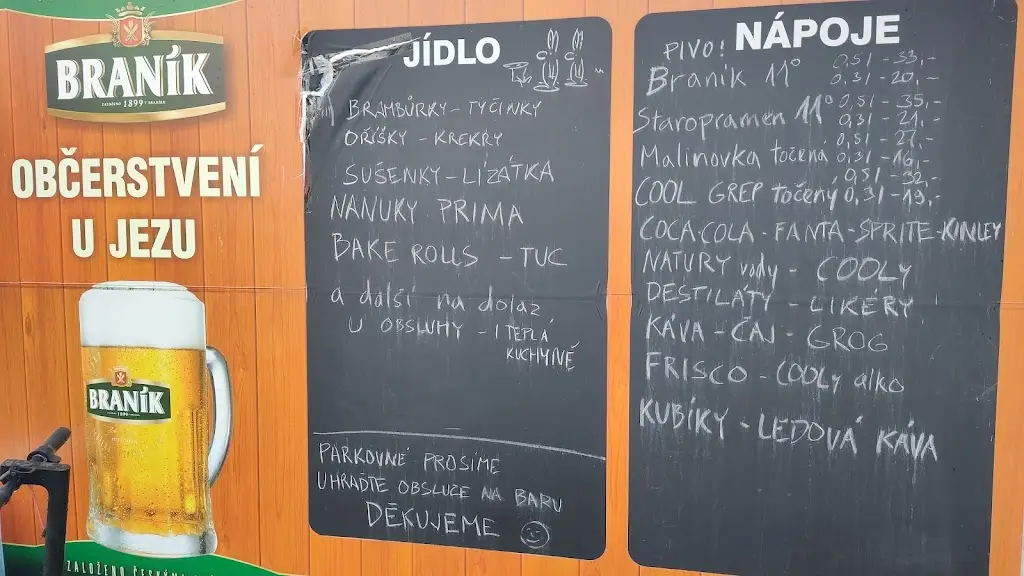 BRANÍK
ZALOŽENO 1899 V BRANÍKU
OBČERSTVENÍ
U JEZU
BRANÍK
1899
ZALOŽENO
JÍDLO
BRAMBŮRKY - TYČINKY
OŘÍŠKY - KREKRY
SUŠENKY - LÍZÁTKA
NANUKY PRIMA
BAKE ROLLS - TUC
a další na dotaz
U OBSLUHY - I TEPLÁ
KUCHYNĚ
PARKOVNÉ PROSÍME
UHRAĎTE OBSLUZE NA BARU
DĚKUJEME
NÁPOJE
PIVO!
Braník 11° 0,5l - 33,-
0,3l - 20,-
Staropramen 11° 0,5l - 35,-
0,3l - 21,-
Malinovka točená 0,5l - 27,-
0,3l - 16,-
COOL GREP točený 0,5l - 32,-
0,3l - 19,-
COCA.COLA - FANTA - SPRITE - KINLEY
NATURY vody - COOLy
DESTILÁTY - LIKÉRY
KÁVA - ČAJ - GROG
FRISCO - COOLy alko
KUBÍKY - LEDOVÁ KÁVA